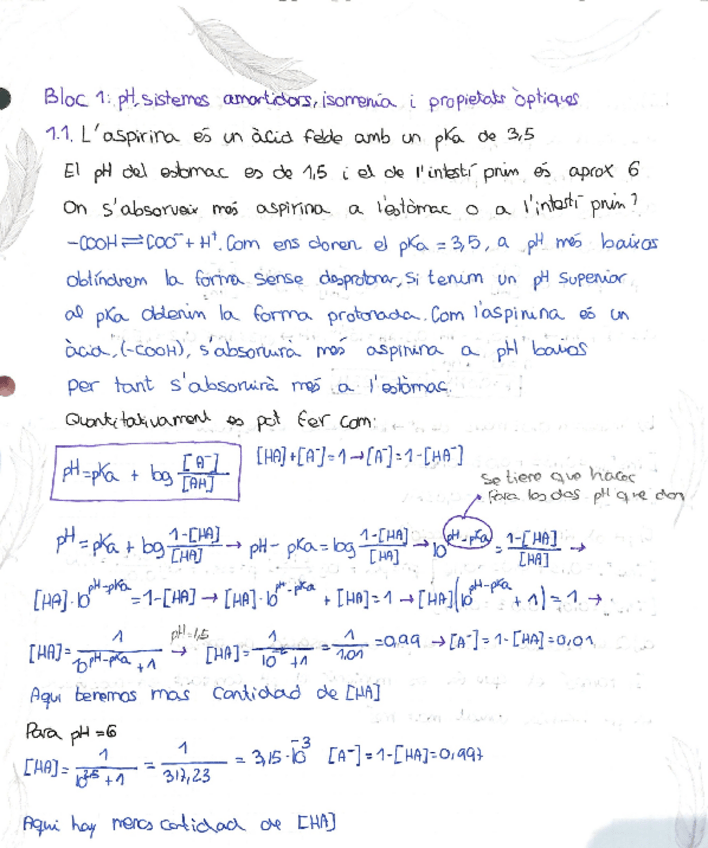 Bloc 1: pH, sistemes amortidors, isomeria i propietats òptiques
1.1. L'aspirina és un àcid feble amb un pKa de 3,5
El pH del estomac es de 1,5 i el de l'intestí prim és aprox 6
On s'absorveix més aspirina a l'estòmac o a l'intestí prim?
-COOH ⇌ COO⁻ + H⁺. Com ens donen el pKa = 3,5, a pH més baixos
obtindrem la forma sense desprotonar, si tenim un pH superior
al pKa obtenim la forma protonada. Com l'aspirina és un
àcid, (-COOH), s'absorvirà més aspirina a pH baixos
per tant s'absorvirà més a l'estòmac.
Quantitativament es pot fer com:
pH = pKa + log [A⁻]/[AH]
[HA] + [A⁻] = 1 → [A⁻] = 1 - [HA⁻]
Se tiene que hacer
Para los dos pH que dan
pH = pKa + log 1-[HA]/[HA] → pH - pKa = log 1-[HA]/[HA] → 10^(pH-pKa) = 1-[HA]/[HA] →
[HA]·10^(pH-pKa) = 1-[HA] → [HA]·10^(pH-pKa) + [HA] = 1 → [HA](10^(pH-pKa) + 1) = 1 →
[HA] = 1/(10^(pH-pKa) + 1) pH=1,5 → [HA] = 1/(10⁻² + 1) = 1/1,01 = 0,99 → [A⁻] = 1-[HA] = 0,01
Aqui tenemos mas cantidad de [HA]
Para pH = 6
[HA] = 1/(10^2,5 + 1) = 1/317,23 = 3,15·10⁻³ [A⁻] = 1-[HA] = 0,997
Aqui hay menos cantidad de [HA]